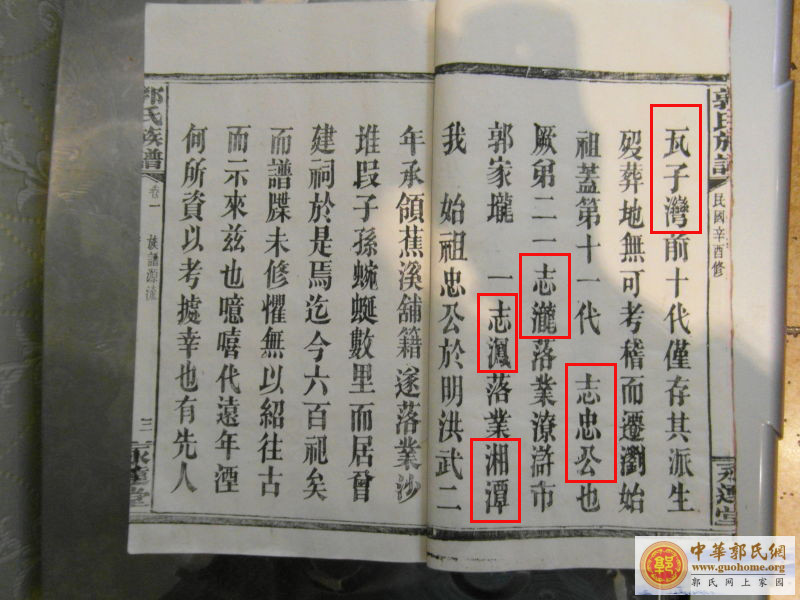 郭氏族譜
民國辛酉修
瓦子灣前十代僅存其派生
歿葬地無可考稽而遷瀏始
祖蓋第十一代 志忠公也
厥弟二一志瀧落業潦滸市
郭家壠 一志渢落業湘潭
我 始祖忠公於明洪武二
年承領蕉溪舖籍遂落業沙
堆段子孫蜿蜒數里而居曾
建祠於是焉迄今六百祀矣
而譜牒未修懼無以紹往古
而示來兹也噫嘻代遠年湮
何所資以考據幸也有先人
郭氏族譜
卷一
族譜源流
三
中華郭氏網
www.guohome.org
郭氏网上家园